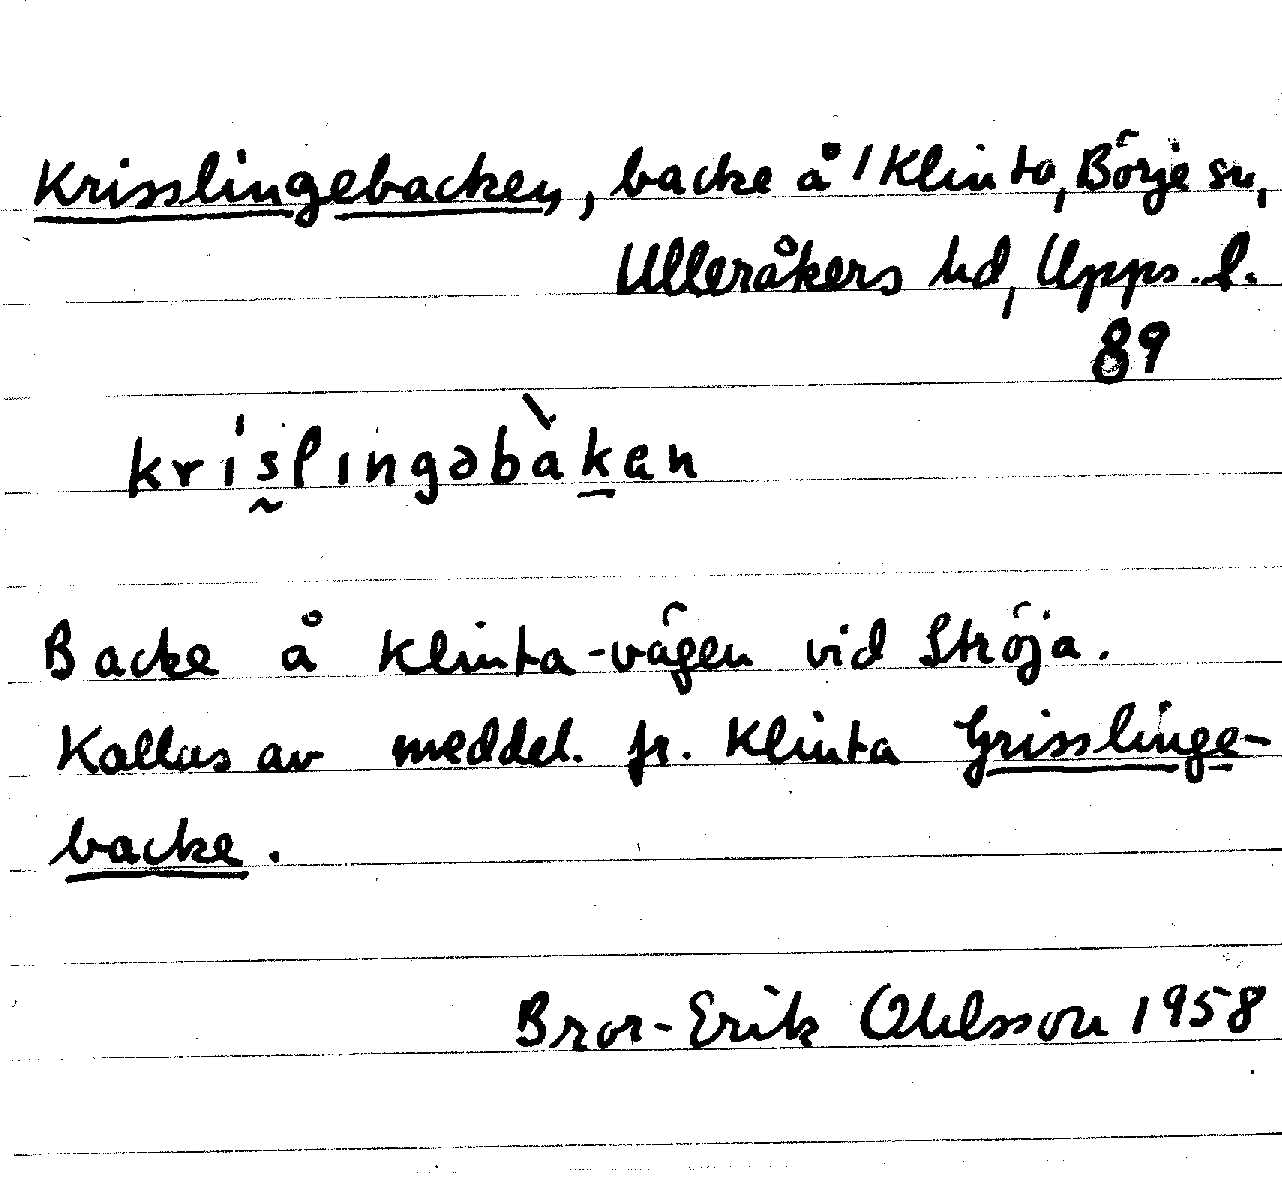 Krisslingebacken, backe å /Klinta, Börje sn,
Ulleråkers hd, Upps. l.
89
kri̍s̰lıngəbàk̲en
Backe å Klinta-vägen vid Ströja.
Kallas av meddel. fr. Klinta Grisslinge-
backe.
Bror-Erik Ohlsson 1958